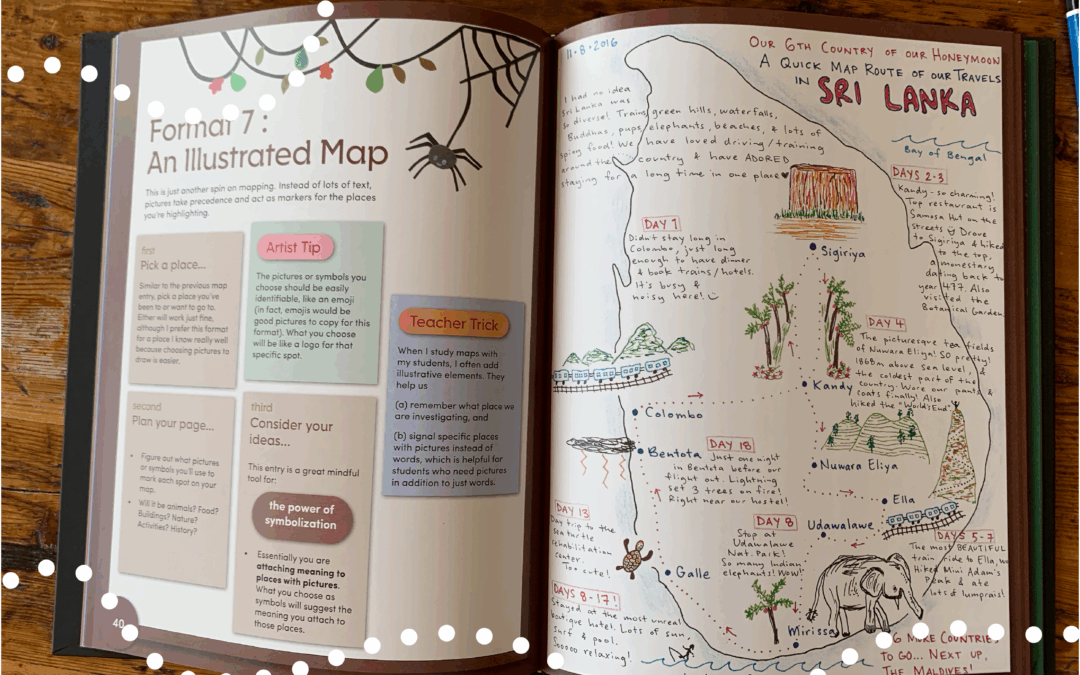 Format 7:
An Illustrated Map
This is just another spin on mapping. Instead of lots of text,
pictures take precedence and act as markers for the places
you're highlighting.
first
Pick a place...
Similar to the previous map
entry, pick a place you've
been to or want to go to.
Either will work just fine,
although I prefer this format
for a place I know really well
because choosing pictures to
draw is easier.
Artist Tip
The pictures or symbols you
choose should be easily
identifiable, like an emoji
(in fact, emojis would be
good pictures to copy for this
format). What you choose
will be like a logo for that
specific spot.
Teacher Trick
When I study maps with
my students, I often add
illustrative elements. They
help us
(a) remember what place we
are investigating, and
(b) signal specific places
with pictures instead of
words, which is helpful for
students who need pictures
in addition to just words.
second
Plan your page...
• Figure out what pictures
or symbols you'll use to
mark each spot on your
map.
• Will it be animals? Food?
Buildings? Nature?
Activities? History?
third
Consider your
ideas...
This entry is a great mindful
tool for:
the power of
symbolization
• Essentially you are
attaching meaning to
places with pictures.
What you choose as
symbols will suggest the
meaning you attach to
those places.
40
11·8·2016
OUR 6TH COUNTRY OF OUR HONEYMOON
A QUICK MAP ROUTE OF OUR TRAVELS
IN SRI LANKA
I had no idea
Sri Lanka was
so diverse! Trains, green hills, waterfalls,
Buddhas, pups, elephants, beaches, & lots of
spicy food! We have loved driving/training
around the country & have ADORED
staying for a long time in one place
Bay of Bengal
DAYS 2-3
Kandy - so charming!
Top restaurant is
Samosa Hut on the
streets Drove
to Sigiriya & hiked
to the top,
a monestary
dating back to
year 477. Also
visited the
Botanical Gardens
DAY 1
Didn't stay long in
Colombo, just long
enough to have dinner
& book trains/hotels.
It's busy &
noisy here!
Sigiriya
DAY 4
The picturesque tea fields
of Nuwara Eliya! SO pretty!
1868m above sea level &
the coldest part of the
country. Wore our pants &
coats finally! Also
hiked the "World's End".
Kandy
Colombo
Bentota
DAY 18
Just one night
in Bentota before our
flight out. Lightning
set 3 trees on fire!
Right near our hostel!
Nuwara Eliya
Ella
DAY 13
Day trip to the
sea turtle
rehabilitation
center.
Too cute!
DAY 8
Stop at
Udawalawe
Nat. Park!
So many Indian
elephants! Wow!
Udawalawe
DAYS 5-7
The most BEAUTIFUL
train ride to Ella, we
Hiked Mini Adam's
Peak & ate
lots of lumprais!
Galle
DAYS 8-17!
Stayed at the most unreal
boutique hotel. Lots of sun,
surf & pool.
Sooooo relaxing!
Mirissa
6 MORE COUNTRIES
TO GO... NEXT UP,
THE MALDIVES!